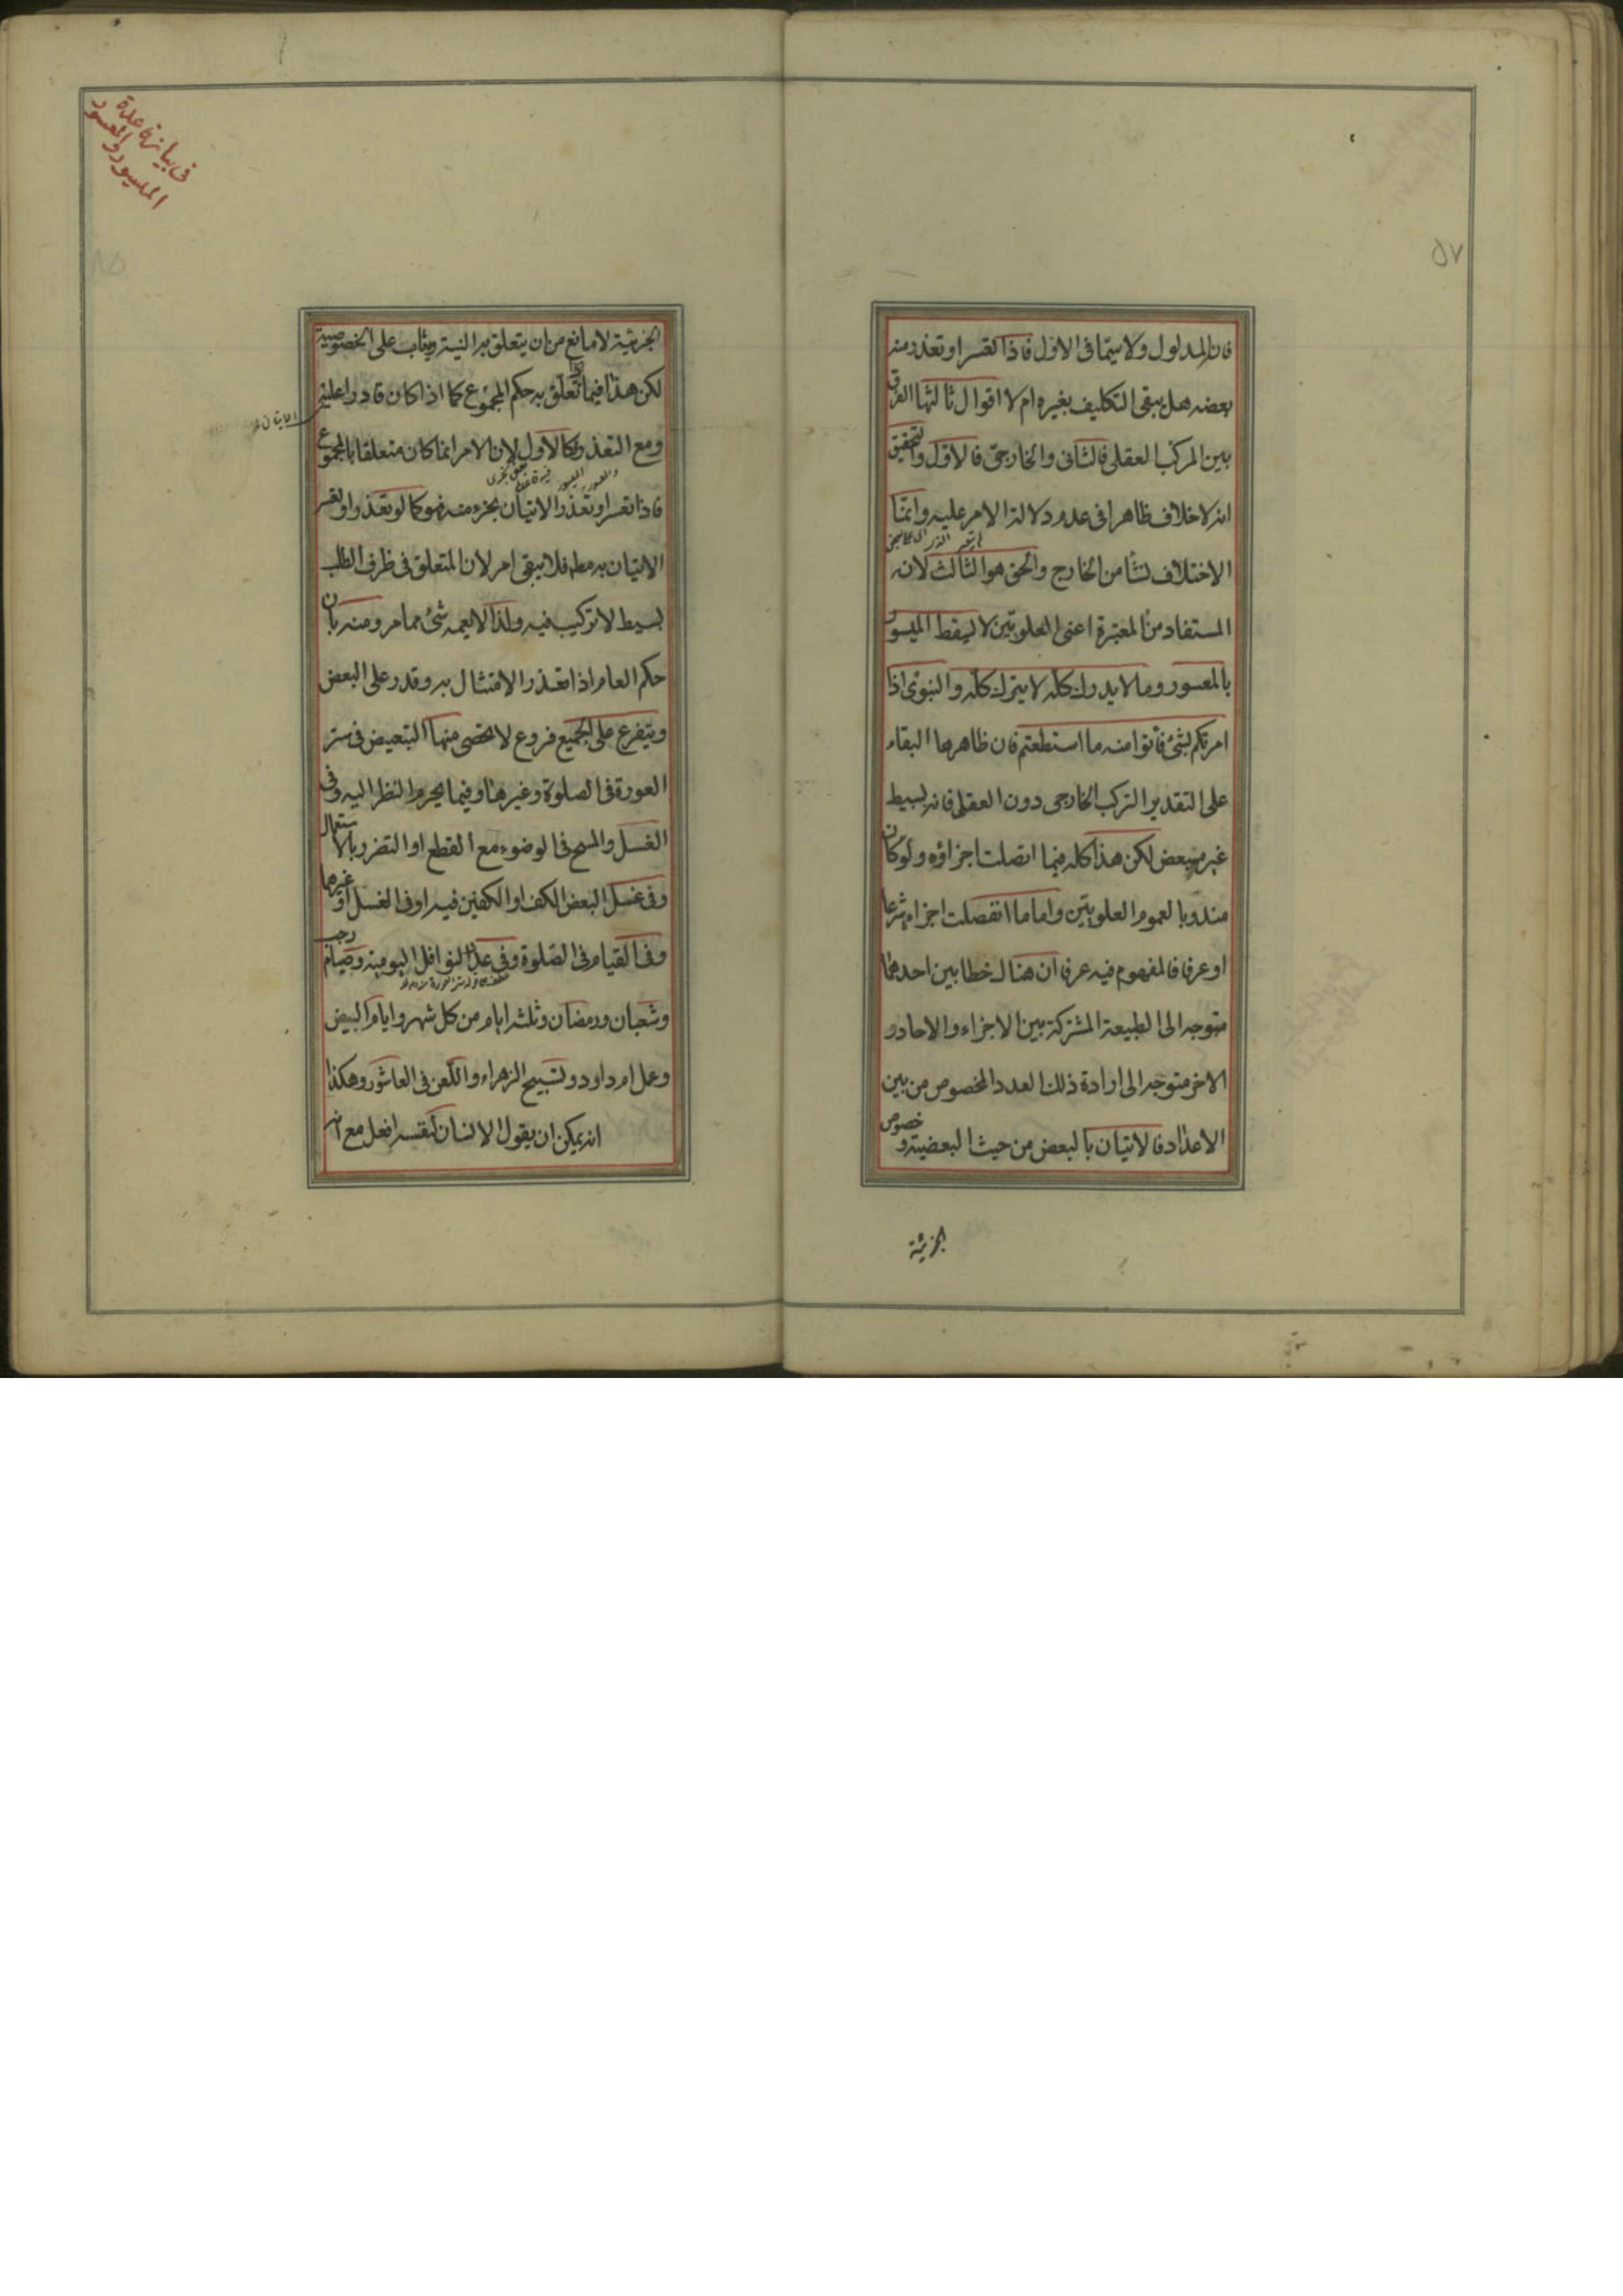 فان المدلول ولا سيما فى الاول فاذا تعسر او تعذر منه
بعضه هل يبقى التكليف بغيره ام لا اقوال ثالثها الفرق
بين المركب العقلى فالثانى والخارجى فالاول والتحقيق
انه لا خلاف ظاهرا فى عدم دلالة الامر عليه وانما
الاختلاف نشأ من الخارج والحق هو الثالث لانه
المستفاد من المعتبرة اعنى العلويتين لا يسقط الميسور
بالمعسور وما لا يدرك كله لا يترك كله والنبوى اذا
امرتكم بشئ فأتوا منه ما استطعتم فان ظاهرها البقاء
على التقدير التركب الخارجى دون العقلى فانه بسيط
غير متبعض لكن هذا كله فيما اتصلت اجزاؤه ولو كان
مندوبا لعموم العلويتين واما ما انفصلت اجزاؤه شرعا
او عرفا فالمفهوم فيه عرفا ان هناك خطابين احدهما
متوجه الى الطبيعة المشتركة بين الاجزاء والاحاد و
الاخر متوجه الى ارادة ذلك العدد المخصوص من بين
الاعداد فالاتيان بالبعض من حيث البعضية و خصوص
الجزئية
٥٧
فى بيان قاعدة
الميسور والمعسور
الجزئية لا مانع من ان يتعلق به النية ويثاب على الخصوصية
لكن هذا فيما تعلق به حكم المجموع كما اذا كان قادرا عليه
ومع التعذر فكالاول لان الامر انما كان متعلقا بالمجموع
فاذا تعسر او تعذر الاتيان بجزء منه فهو كما لو تعذر او تعسر
الاتيان به مطه فلا يبقى امر لان المتعلق فى ظرف الطلب
بسيط لا تركيب فيه ولذا لا يعمه شئ مما مر ومنه بان
حكم العام اذا تعذر الامتثال به وقدر على البعض
ويتفرع على الجميع فروع لا تحصى منها التبعيض فى ستر
العورة فى الصلوة وغيرها وفيما يحرم النظر اليه وفى
الغسل والمسح فى الوضوء مع القطع او التضرر بالاستعمال
وفى غسل البعض الكف او الكفين فيه او فى الغسل او غيرهما
وفى القيام فى الصلوة وفى عدد النوافل اليومية وصيام رجب
وشعبان ورمضان وثلثه ايام من كل شهر وايام البيض
وعمل ام داود وتسبيح الزهراء واللعن فى العاشور وهكذا
انه يمكن ان يقول الانسان لنفسه افعل مع